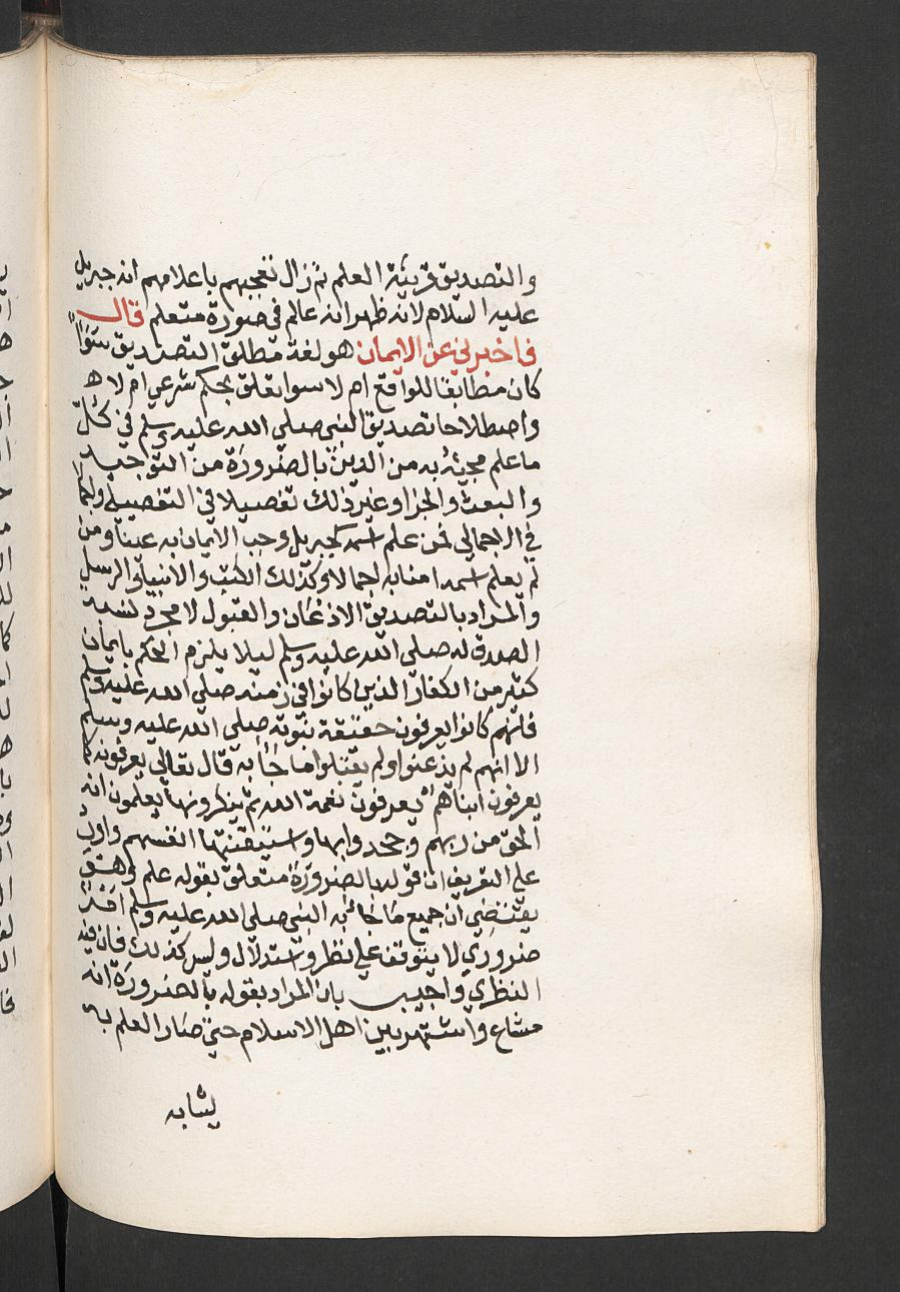 والتصديق قرينة العلم ثم زال تعجبهم باعلامهم انه جبريل
عليه السلام لانه ظهر انه عالم في صورة متعلم قال
فاخبرني عن الايمان هو لغة مطلق التصديق سوآءً
كان مطابقا للواقع ام لا سوا تعلق بحكم شرعي ام لا ه
واصطلاحا تصديق النبي صلي الله عليه وسلم في كلّ
ما علم مجيئه به من الدين بالضرورة من التوحيد
والبعث والجزا وغير ذلك تفصيلا في التفصيلي واجمالا
في الاجمالي فمن علم اسمه كجبريل وجب الايمان به عينا ومن
لم يعلم اسمه امنا به اجمالا وكذلك الكتب والانبيا والرسل
والمراد بالتصديق الاذعان والقبول لا مجرد نسبة
الصدق له صلي الله عليه وسلم ليلا يلزم الحكم بايمان
كثير من الكفار الذين كانوا في زمنه صلي الله عليه وسلم
فانهم كانوا يعرفون حقيقة نبوته صلي الله عليه وسلم
الا انهم لم يذعنوا ولم يقبلوا ما جآ به قال تعالي يعرفونه كما
يعرفون ابناهم يعرفون نعمة الله ثم ينكرونها يعلمون انه
الحق من ربهم وجحدوا بها واستيقنتها انفسهم واورد
علي التعريف ان قوله بالضرورة متعلق بقوله علم وهو
يقتضي ان جميع ما جآ به النبي صلي الله عليه وسلم
ضروري لا يتوقف علي نظر واستدلال وليس كذلك فان فيه
النظري واجيب بان المراد بقوله بالضرورة انه
مشاع واشتهر بين اهل الاسلام حتي صار العلم به
يشابه